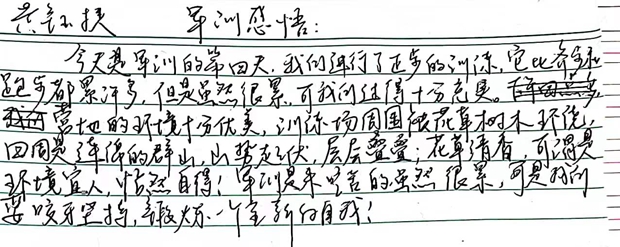 军训感悟：
今天是军训的第四天，我们进行了正步的训练，它比齐步和
跑步都累许多，但是虽然很累，可我们过得十分充实。
营地的环境十分优美，训练场周围被花草树木环绕，
四周是连绵的群山，山势起伏，层层叠叠；花草清香，可谓是
环境宜人，怡然自得！军训是来吃苦的虽然很累，可是我们
要咬牙坚持，锻炼一个全新的自我！